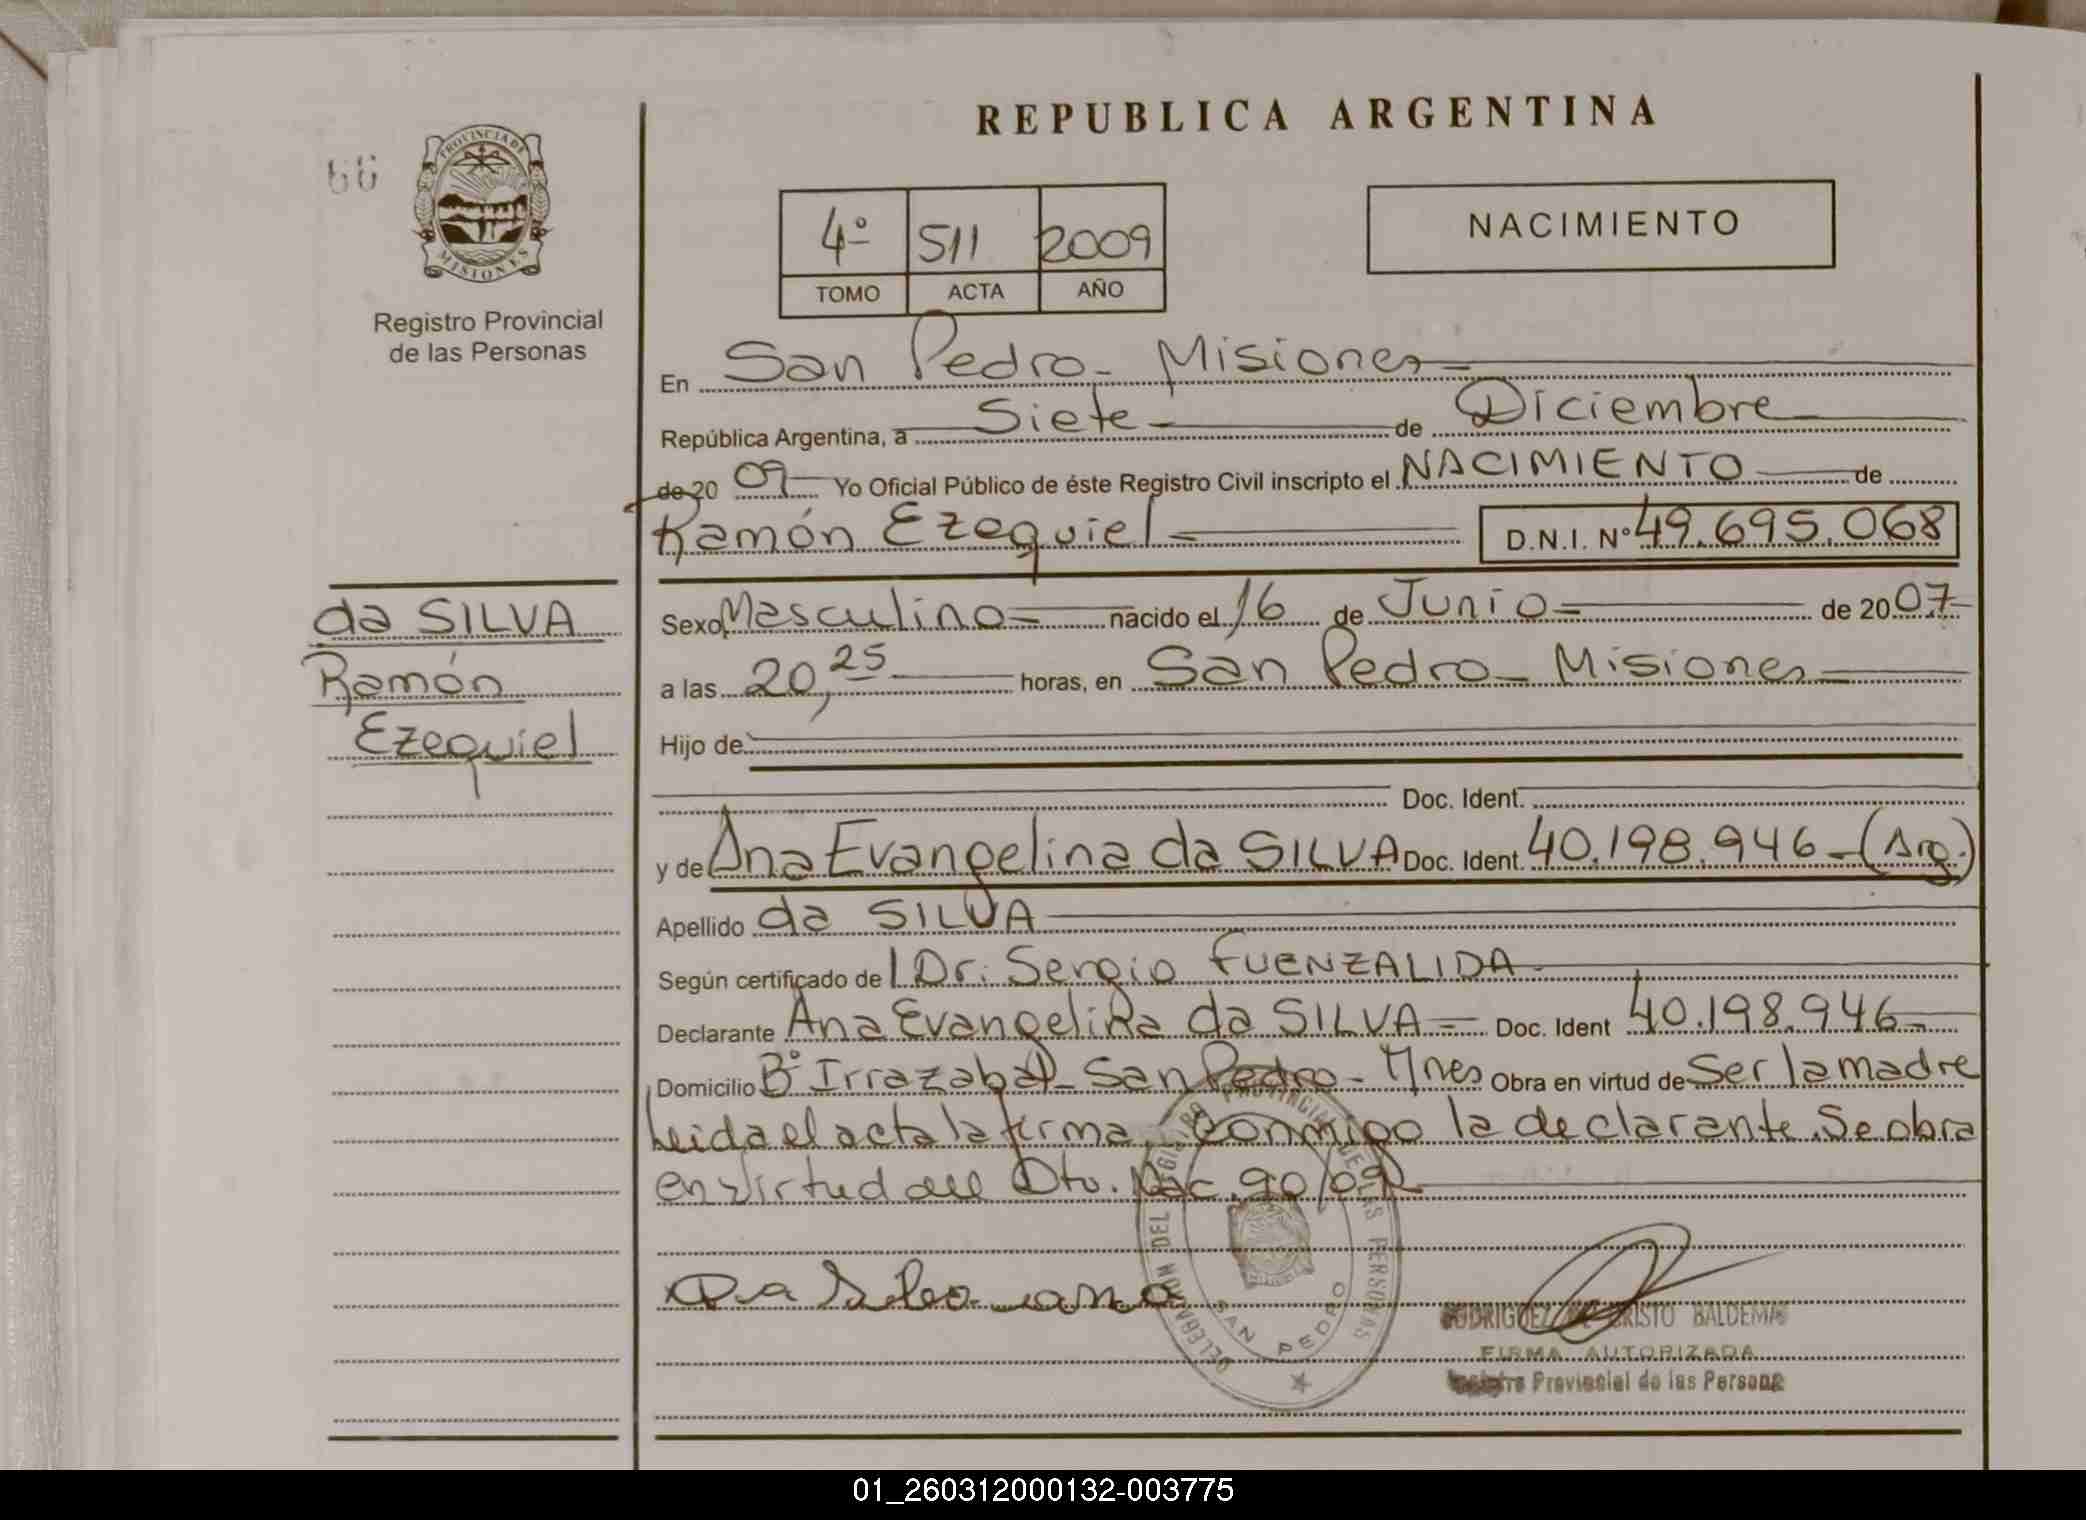 REPUBLICA ARGENTINA
66
PROVINCIA DE
MISIONES
Registro Provincial
de las Personas
4º 511 2009
TOMO ACTA AÑO
NACIMIENTO
En San Pedro - Misiones
República Argentina, a Siete de Diciembre
de 20 09 Yo Oficial Público de éste Registro Civil inscripto el NACIMIENTO de
Ramón Ezequiel D.N.I. Nº 49.695.068
da SILVA
Ramón
Ezequiel
Sexo Masculino nacido el 16 de Junio de 2007
a las 20,25 horas, en San Pedro - Misiones
Hijo de
Doc. Ident.
y de Ana Evangelina da SILVA Doc. Ident. 40.198.946 - (Arg.)
Apellido da SILVA
Según certificado de l Dr. Sergio FUENZALIDA
Declarante Ana Evangelina da SILVA Doc. Ident 40.198.946
Domicilio Bº Irrazabal - San Pedro - Mnes Obra en virtud de Ser la madre
Leida el acta la firma conmigo la declarante. Se obra
en virtud del Dto. Nac. 90/09
Da Silva ana
DELEGACION DEL REGISTRO PROVINCIAL DE LAS PERSONAS
SAN PEDRO
RODRIGUEZ CRISTO BALDEMAR
FIRMA AUTORIZADA
Registro Provincial de las Persona
01_260312000132-003775